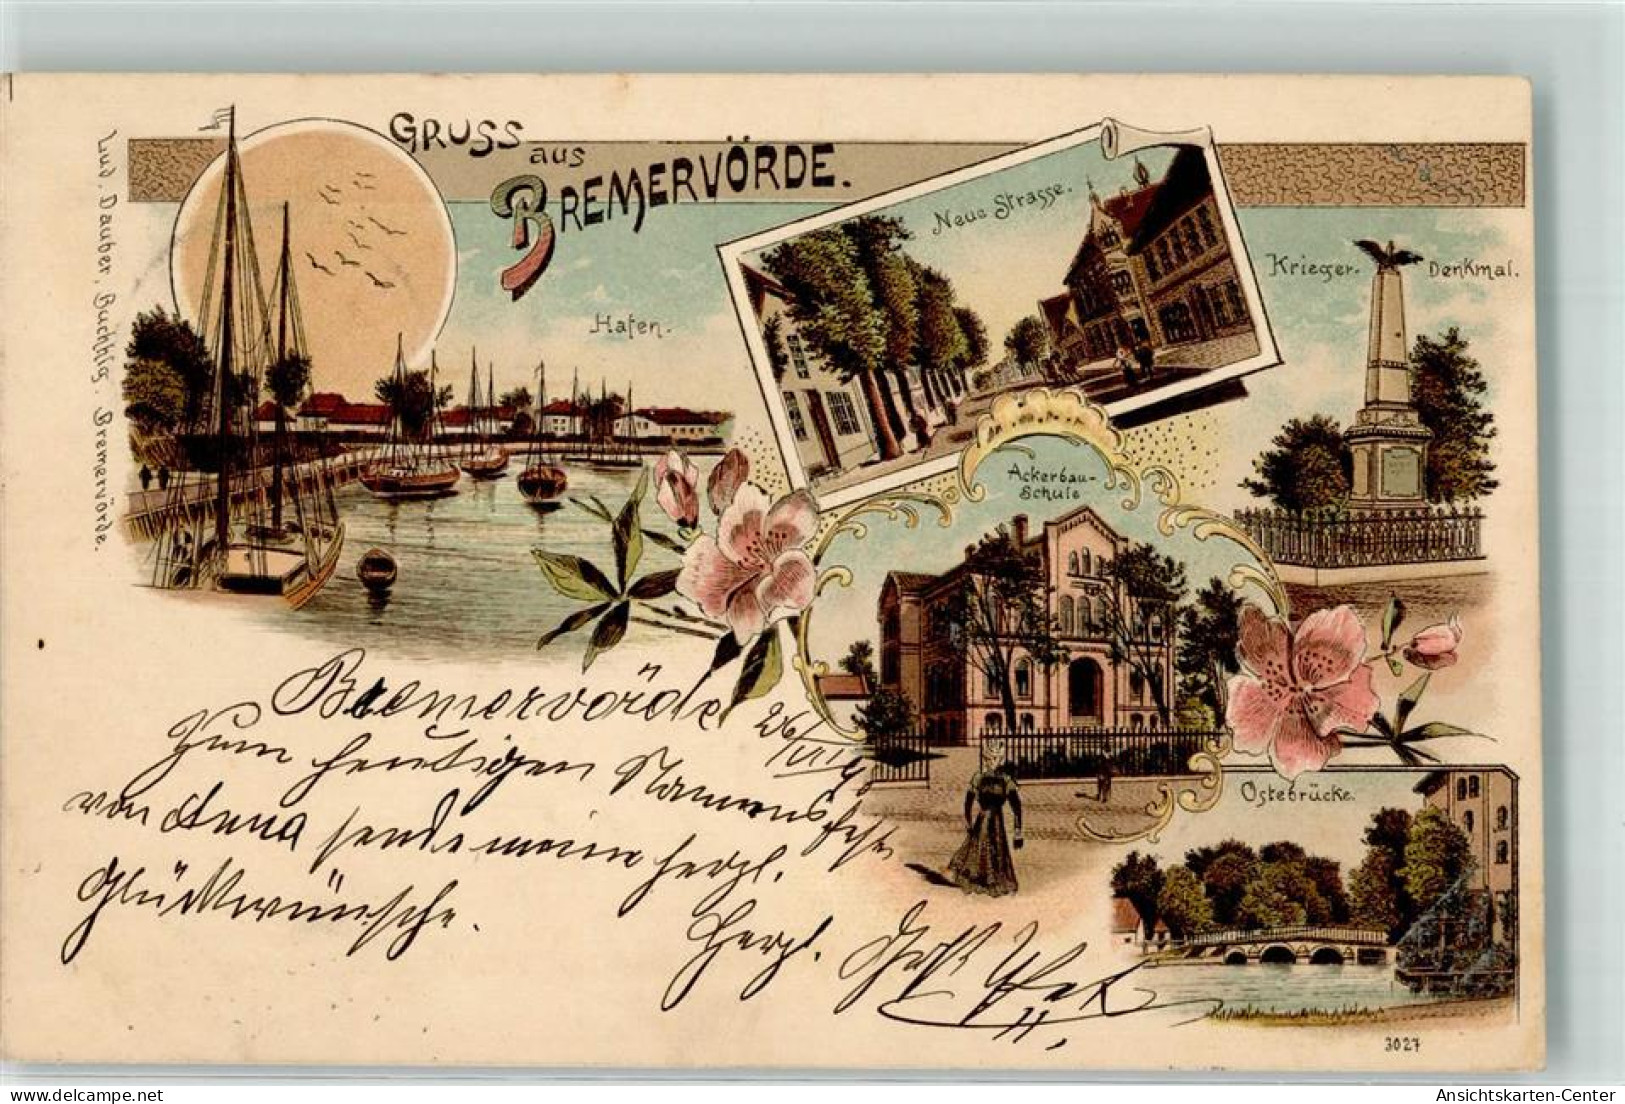 GRUSS aus
BREMERVÖRDE.
Hafen.
Neue Strasse.
Krieger-Denkmal.
Ackerbau-
Schule
Ostebrücke.
Lud. Dauber, Buchhlg. Bremervörde.
Bremervörde 26/VII
Zum heutigen Namensfeste
von Anna sende meine herzl.
Glückwünsche.
Herzl.
3027
Ansichtskarten-Center